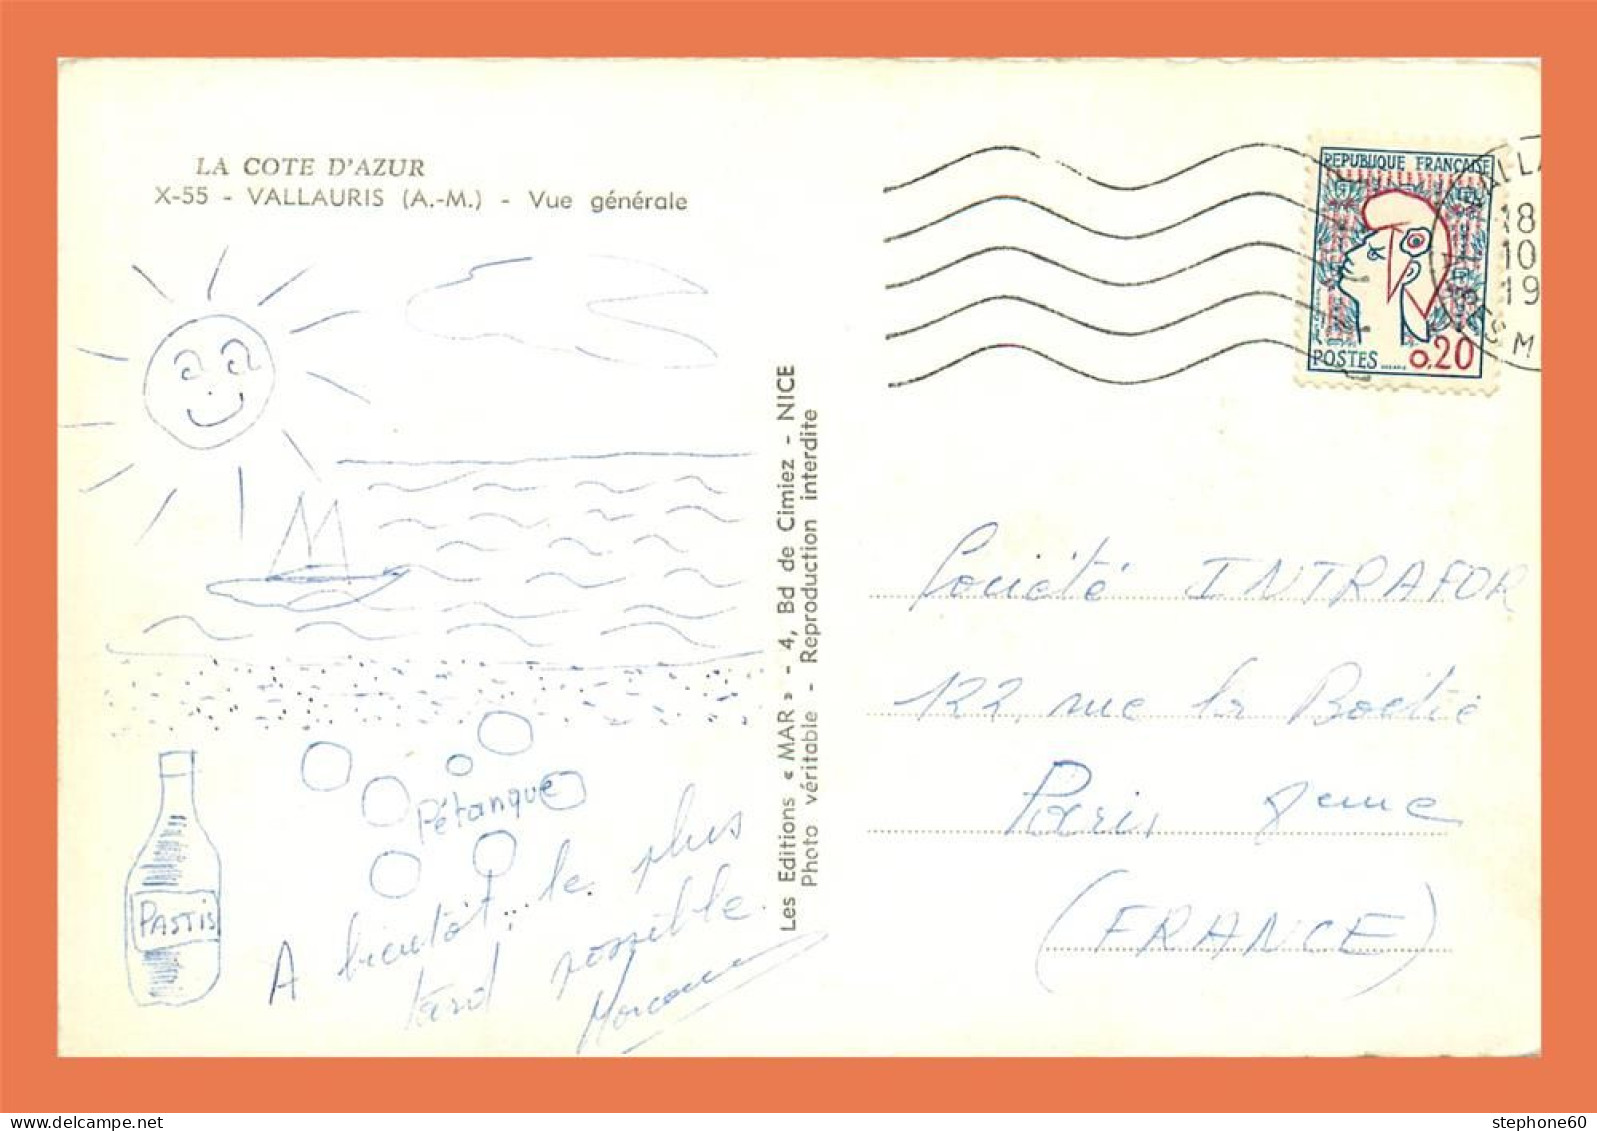 LA COTE D'AZUR
X-55 - VALLAURIS (A.-M.) - Vue générale
PASTIS
Pétanque
A bientôt... le plus
tard possible.
Les Editions « MAR » - 4, Bd de Cimiez - NICE
Photo véritable - Reproduction interdite
REPUBLIQUE FRANÇAISE
POSTES 0,20
18
10
19
Société INTRAFOR
122, rue la Boëtie
Paris 8eme
(FRANCE)
stephone60